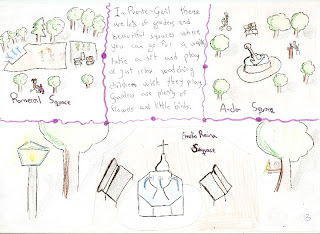 In Puente-Genil there
are lots of gardens and
beautiful squares where
you can go for a walk,
take a sit and play
or just relax watching
children while they play.
Gardens are plenty of
flowers and little birds.
Romeral Square
Square
Emilio Reina
Square
3